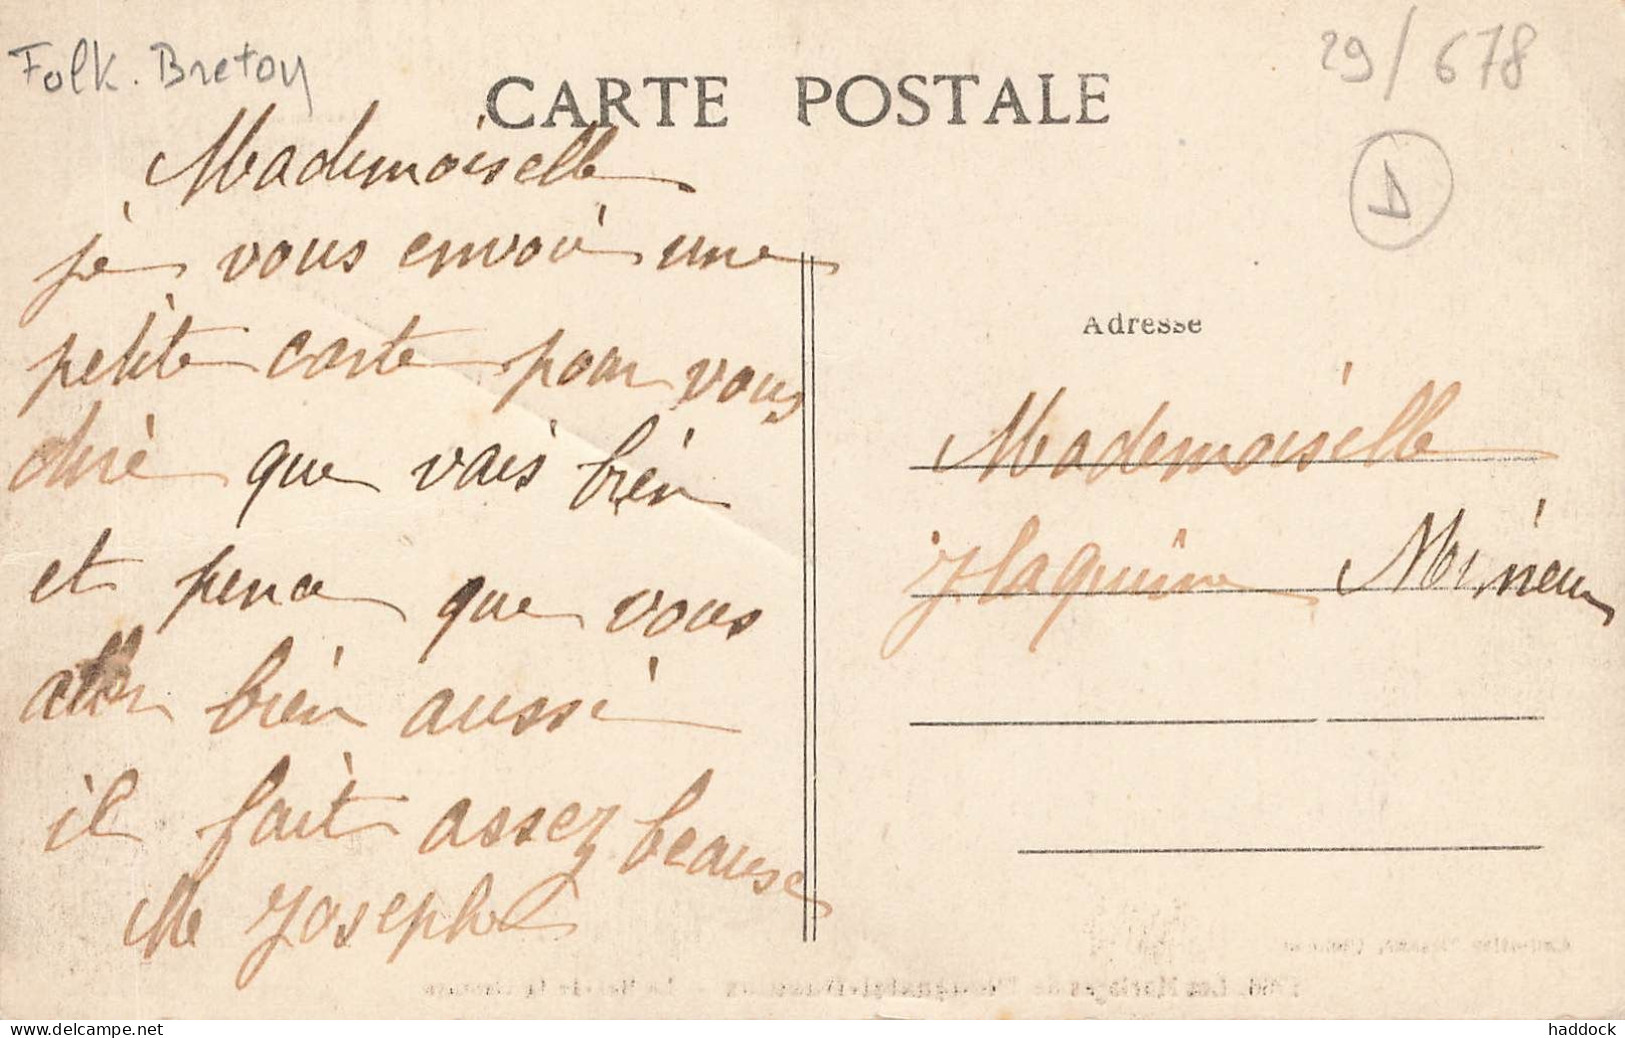 Folk. Breton
29/678
CARTE POSTALE
D
Mademoiselle
je vous envoie une
petite carte pour vous
dire que vais bien
et pence que vous
bien aussi
il fait assez beause
Me Joseph
Adresse
Mademoiselle
haddock